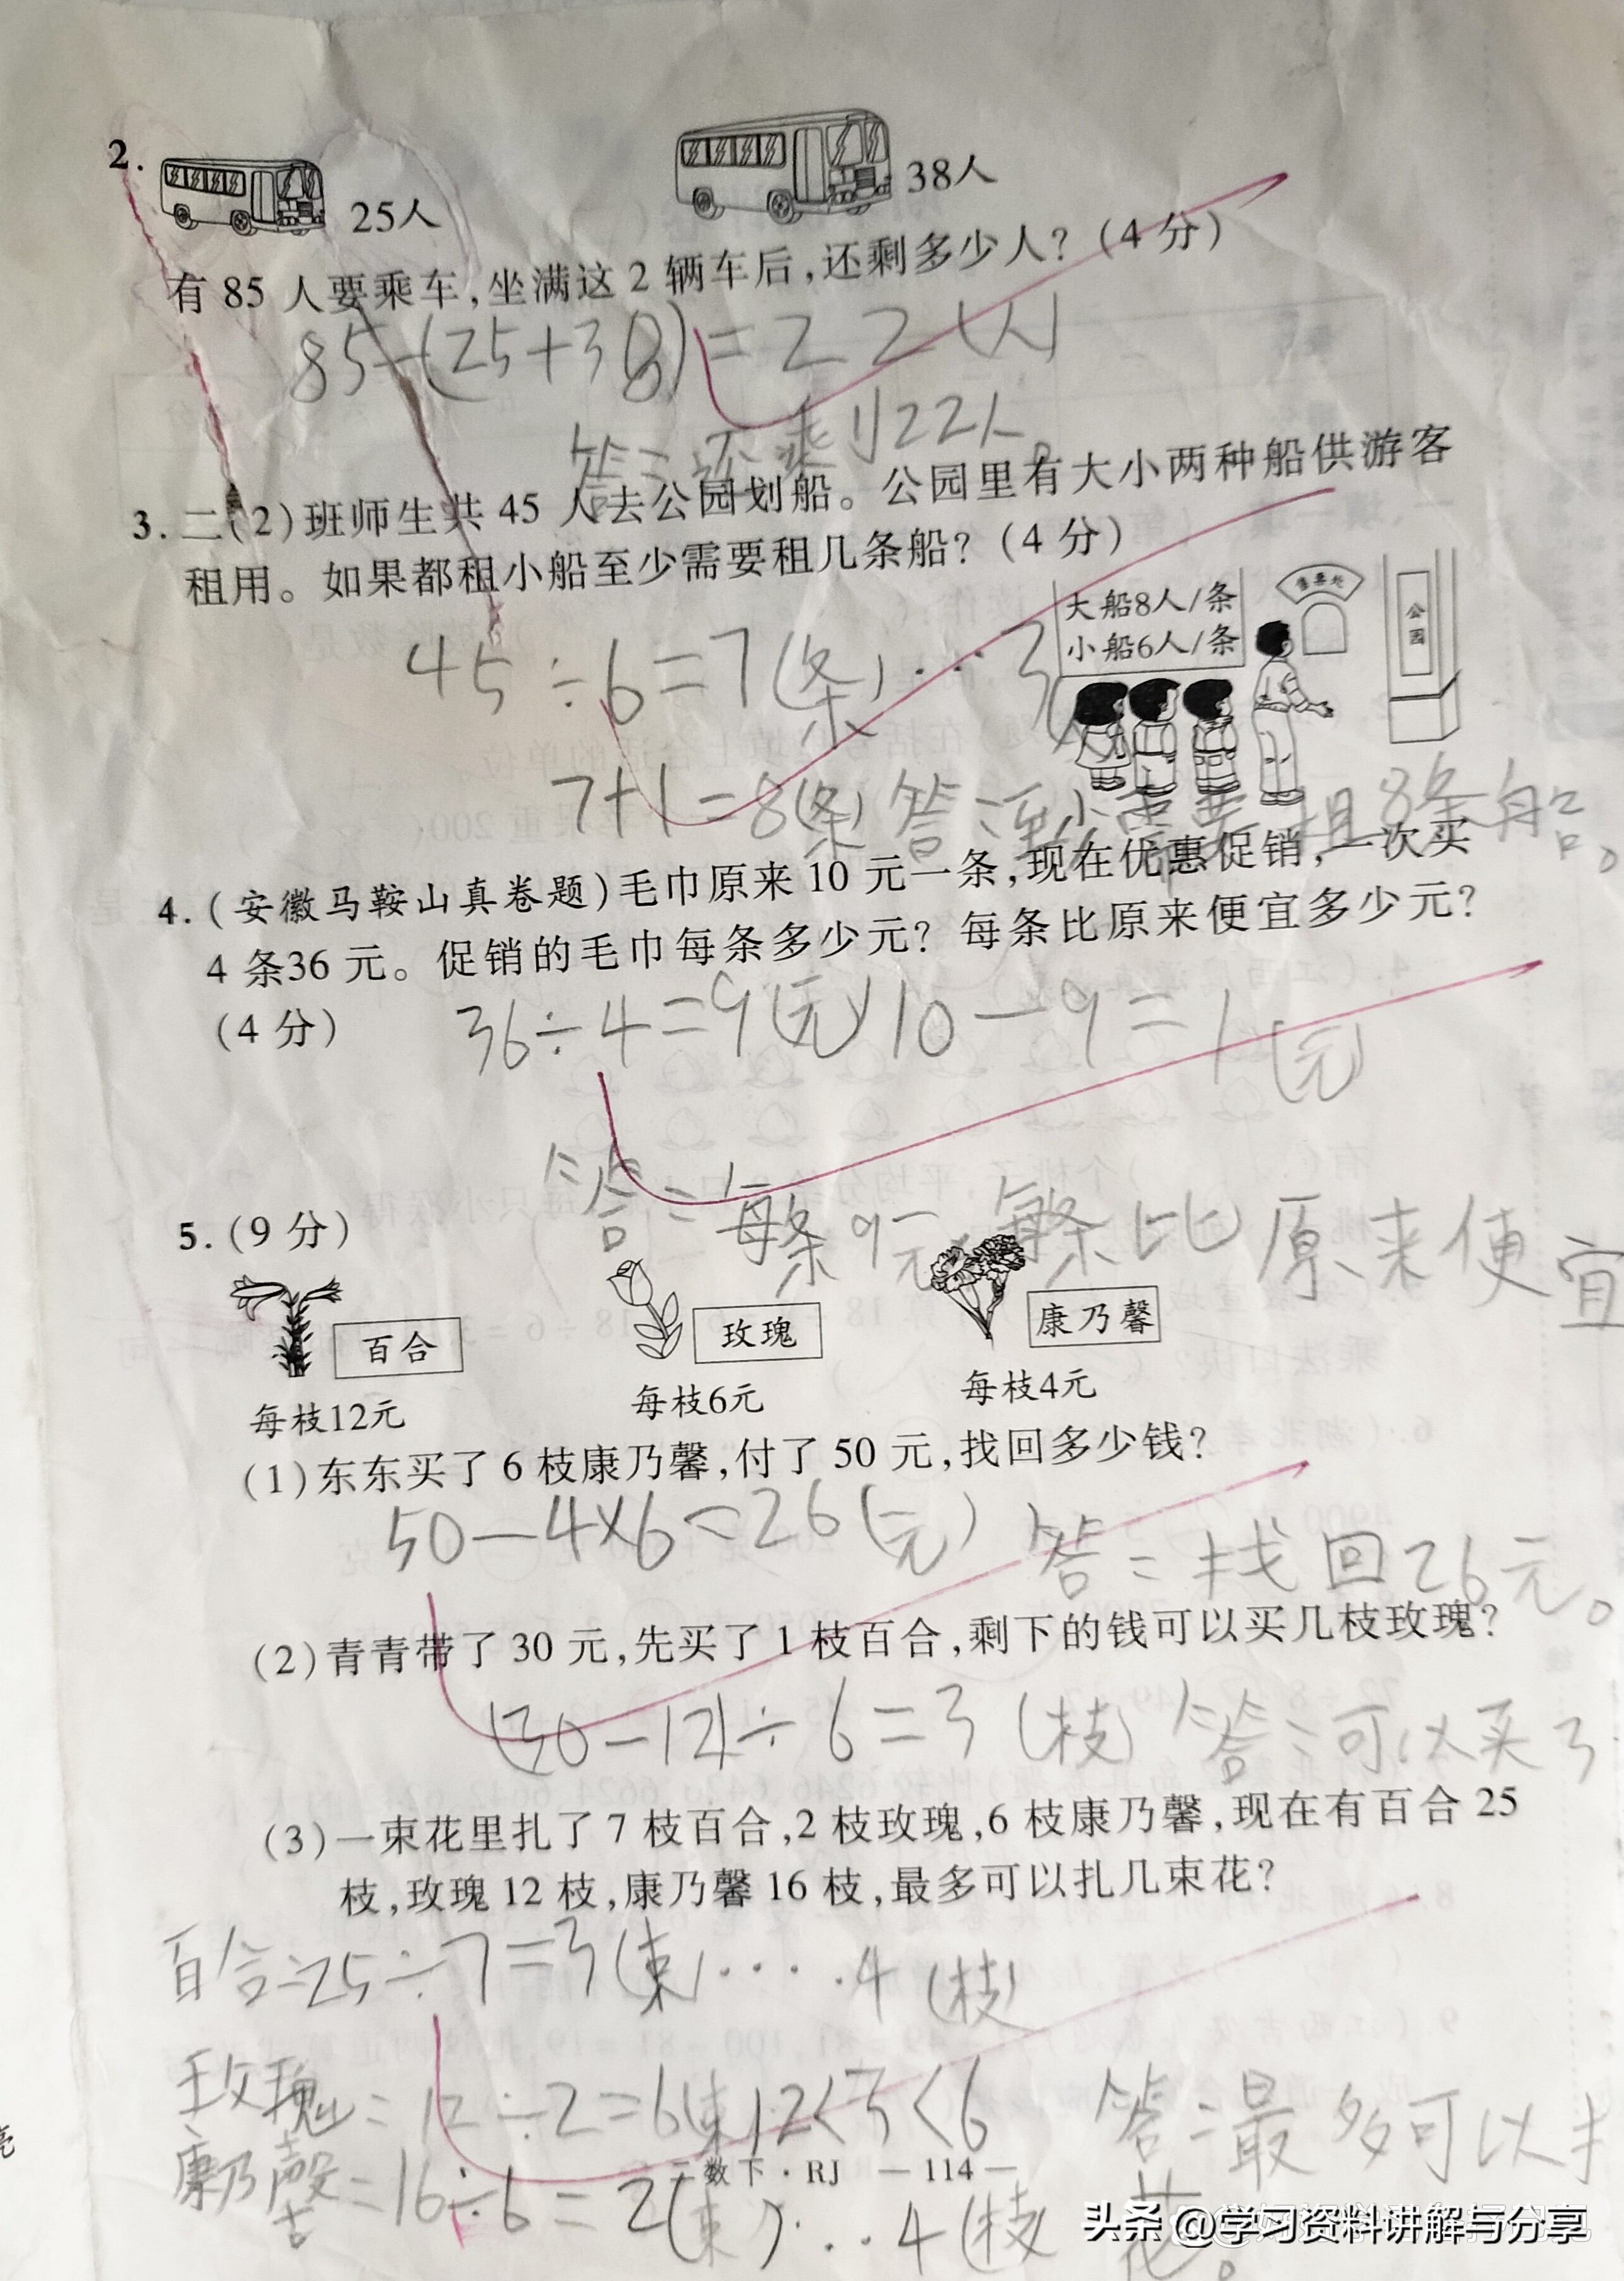 2.
25人
38人
有 85 人要乘车,坐满这 2 辆车后,还剩多少人?(4 分)
85-(25+38)=22(人)
答:还乘刂22人。
3. 二(2)班师生共 45 人去公园划船。公园里有大小两种船供游客
租用。如果都租小船至少需要租几条船?(4 分)
大船8人/条
小船6人/条
售票处
公园
45÷6=7(条)…3
7+1=8(条) 答:至少需要租8条船。
4. (安徽马鞍山真卷题)毛巾原来 10 元一条,现在优惠促销,一次买
4 条36 元。促销的毛巾每条多少元?每条比原来便宜多少元?
(4 分)
36÷4=9(元) 10-9=1(元)
答:每条9元,每条比原来便宜
5. (9 分)
百合
玫瑰
康乃馨
每枝12元
每枝6元
每枝4元
(1)东东买了 6 枝康乃馨,付了 50 元,找回多少钱?
50-4×6=26(元) 答:找回26元。
(2)青青带了 30 元,先买了 1 枝百合,剩下的钱可以买几枝玫瑰?
(30-12)÷6=3(枝) 答:可以买3
(3)一束花里扎了 7 枝百合,2 枝玫瑰,6 枝康乃馨,现在有百合 25
枝,玫瑰 12 枝,康乃馨 16 枝,最多可以扎几束花?
百合:25÷7=3(束)….4(枝)
玫瑰:12÷2=6(束) 2<3<6 答:最多可以扌
康乃馨:16÷6=2(束)…4(枝 花。
数下·RJ —114—
头条 @学习资料讲解与分享